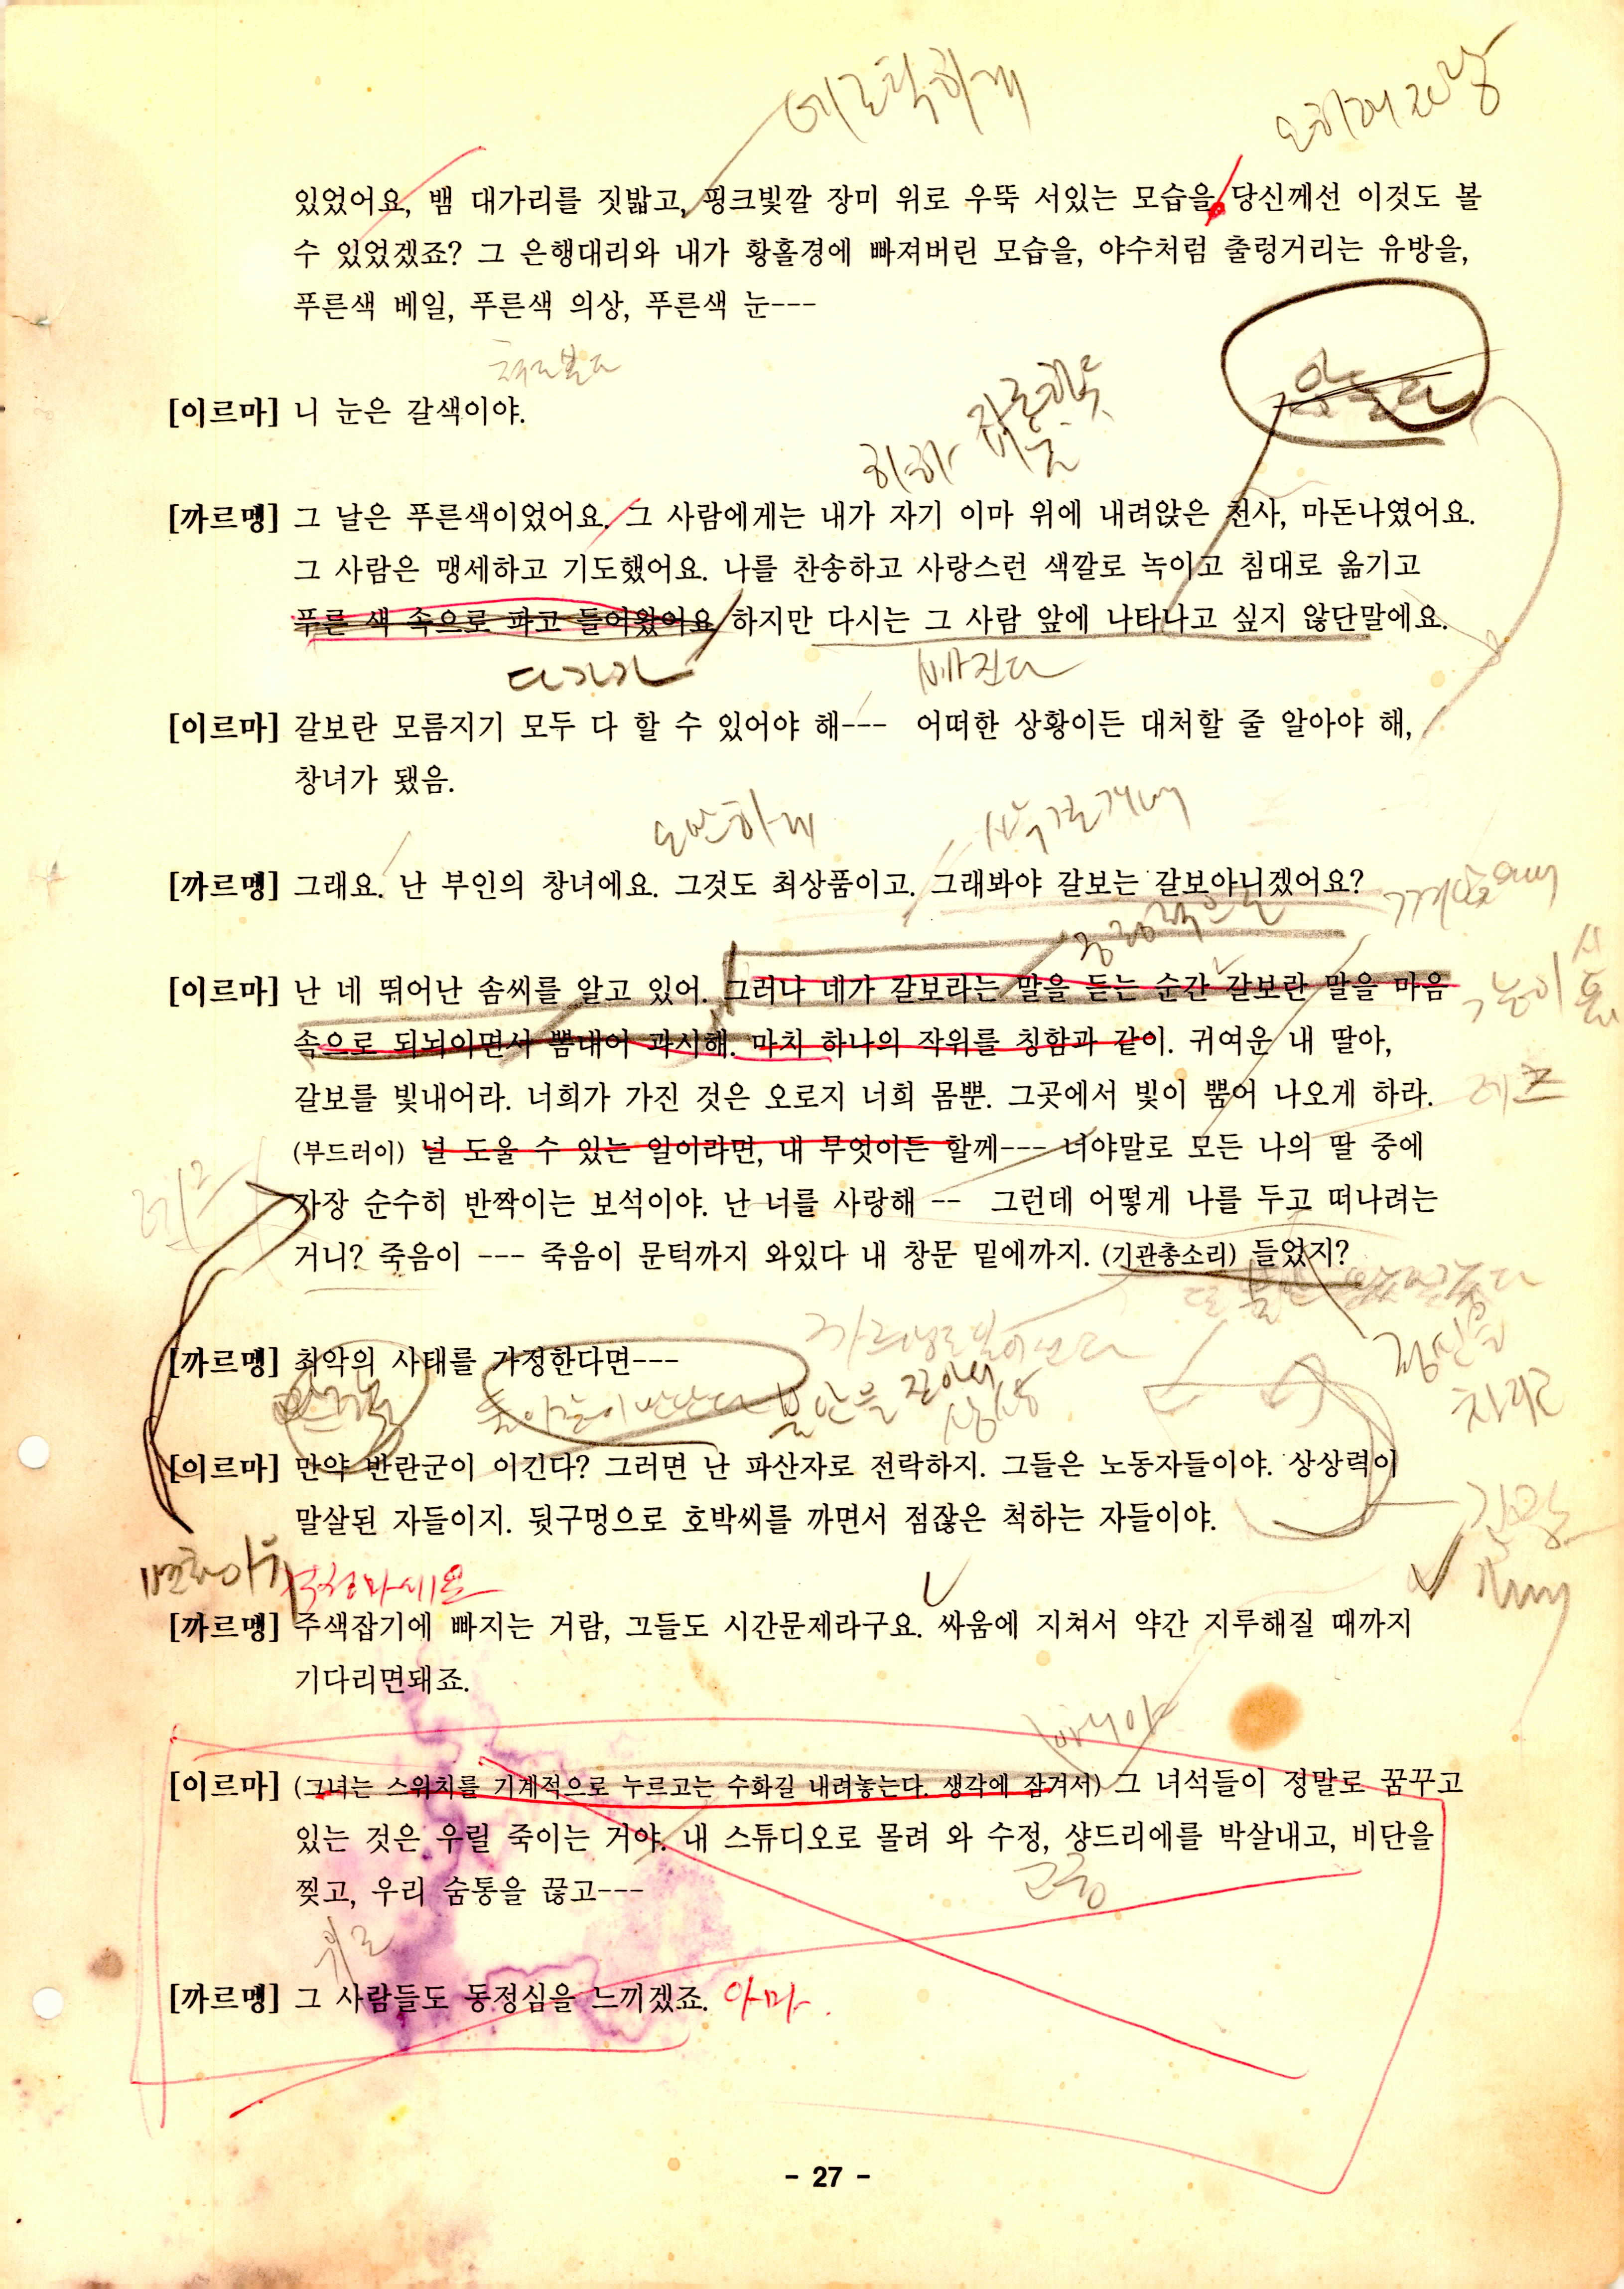 에로틱하게
있었어요, 뱀 대가리를 짓밟고, 핑크빛깔 장미 위로 우뚝 서있는 모습을, 당신께선 이것도 볼
수 있었겠죠? 그 은행대리와 내가 황홀경에 빠져버린 모습을, 야수처럼 출렁거리는 유방을,
푸른색 베일, 푸른색 의상, 푸른색 눈---
쳐다본다
[이르마] 니 눈은 갈색이야.
[까르멩] 그 날은 푸른색이었어요. 그 사람에게는 내가 자기 이마 위에 내려앉은 천사, 마돈나였어요.
그 사람은 맹세하고 기도했어요. 나를 찬송하고 사랑스런 색깔로 녹이고 침대로 옮기고
푸른 색 속으로 파고 들어왔어요 하지만 다시는 그 사람 앞에 나타나고 싶지 않단말에요.
다가가 빠진다
[이르마] 갈보란 모름지기 모두 다 할 수 있어야 해--- 어떠한 상황이든 대처할 줄 알아야 해,
창녀가 됐음.
오만하게
[까르멩] 그래요. 난 부인의 창녀에요. 그것도 최상품이고. 그래봐야 갈보는 갈보아니겠어요?
긍정적으로
[이르마] 난 네 뛰어난 솜씨를 알고 있어. 그러나 네가 갈보라는 말을 듣는 순간 갈보란 말을 마음
속으로 되뇌이면서 뽐내어 과시해. 마치 하나의 자위를 칭함과 같이. 귀여운 내 딸아,
갈보를 빛내어라. 너희가 가진 것은 오로지 너희 몸뿐. 그곳에서 빛이 뿜어 나오게 하라.
(부드러이) 널 도울 수 있는 일이라면, 내 무엇이든 할께--- 너야말로 모든 나의 딸 중에
가장 순수히 반짝이는 보석이야. 난 너를 사랑해 -- 그런데 어떻게 나를 두고 떠나려는
거니? 죽음이 --- 죽음이 문턱까지 와있다 내 창문 밑에까지. (기관총소리) 들었지?
[까르멩] 최악의 사태를 가정한다면---
정신을
차리고
불안을
[이르마] 만약 반란군이 이긴다? 그러면 난 파산자로 전락하지. 그들은 노동자들이야. 상상력이
말살된 자들이지. 뒷구멍으로 호박씨를 까면서 점잖은 척하는 자들이야.
걱정마세요
[까르멩] 주색잡기에 빠지는 거람, 그들도 시간문제라구요. 싸움에 지쳐서 약간 지루해질 때까지
기다리면돼죠.
아니야
[이르마] (그녀는 스위치를 기계적으로 누르고는 수화길 내려놓는다. 생각에 잠겨서) 그 녀석들이 정말로 꿈꾸고
있는 것은 우릴 죽이는 거야. 내 스튜디오로 몰려 와 수정, 샹드리에를 박살내고, 비단을
찢고, 우리 숨통을 끊고---
고층
위로
[까르멩] 그 사람들도 동정심을 느끼겠죠. 아마.
- 27 -